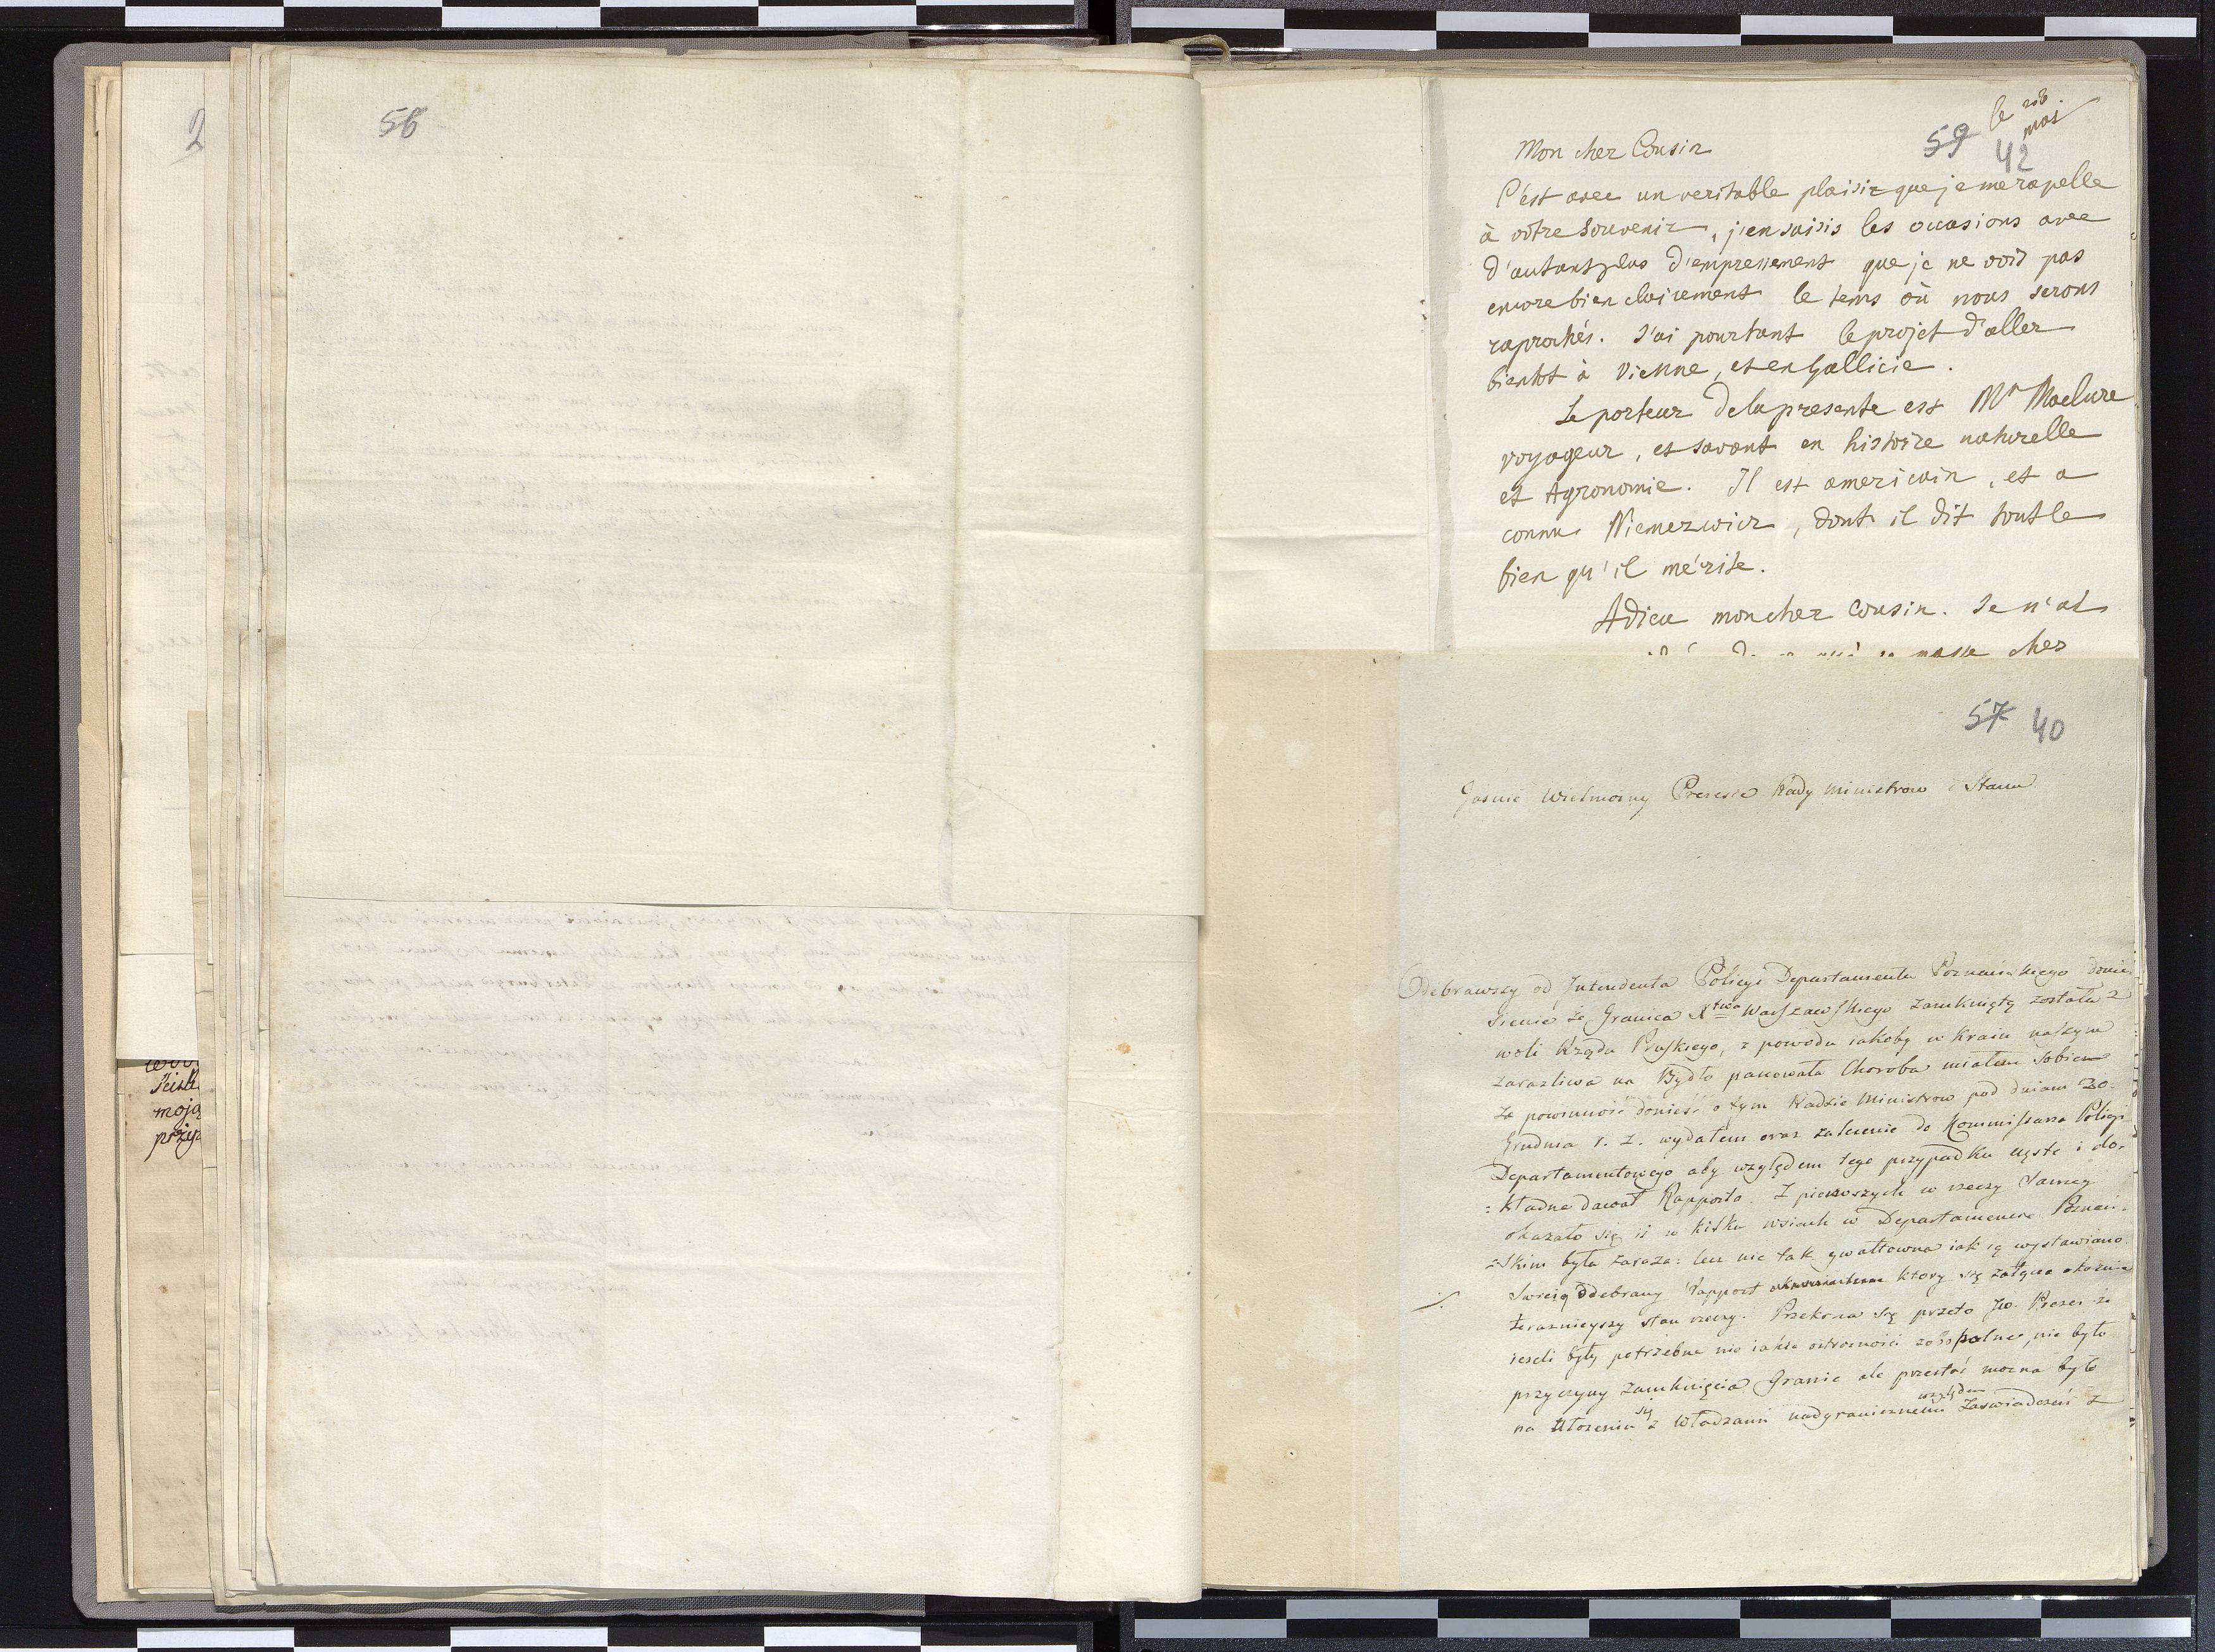 56
2
Seisk
moją
przyp
le 28
mai
59 42
Mon cher Cousin
C'est avec un veritable plaisir que je me rapelle
à vôtre souvenir, j'en saisis les occasions avec
d'autant plus d'empressement que je ne vois pas
encore bien clairement le tems où nous serons
raprochés. J'ai pourtant le projet d'aller
bientot à Vienne, et en Gallicie.
Le porteur de la presente est Mr Maclure
voyageur, et savant en histoire naturelle
et Agronomie. Il est americain, et a
connu Niemcewicz, dont il dit tout le
bien qu'il mérite.
Adieu mon cher Cousin. Je n'ai
passe chez
57 40
Jasnie Wielmożny Prezesie Rady Ministrow i Stanu
Odebrawszy od Intendenta Policyi Departamentu Poznańskiego donie
sienie że Granica Xtwa Warszawskiego zamknięta została z
woli Rządu Pruskiego, z powodu iakoby w Kraiu naszym
zarazliwa na Bydło panowała Choroba miałem sobie
za powinność donieść o tym Radzie Ministrow pod dniem 20.
Grudnia r. z. wydałem oraz zalecenie do Kommissarza Policyi
Departamentowego aby względem tego przypadku częste i do-
=kładne dawał Rapporta. Z pierwszych w rzeczy samey
okazało się iż w kilku wsiach w Departamencie Poznań-
=skim była zaraza: lecz nie tak gwałtowna iak ią wystawiano
Swieżo Odebrany Rapport ktory się załącza okazuie
teraznieyszy stan rzeczy. Przekona się przeto JW. Prezes że
ieżeli były potrzebne nie iakie ostrożności zobopolne, nie było
przyczyny zamknięcia Granic ale przestać można było
względem
na Ułożeniu się z Władzami nadgranicznemi Zaświadczeń z